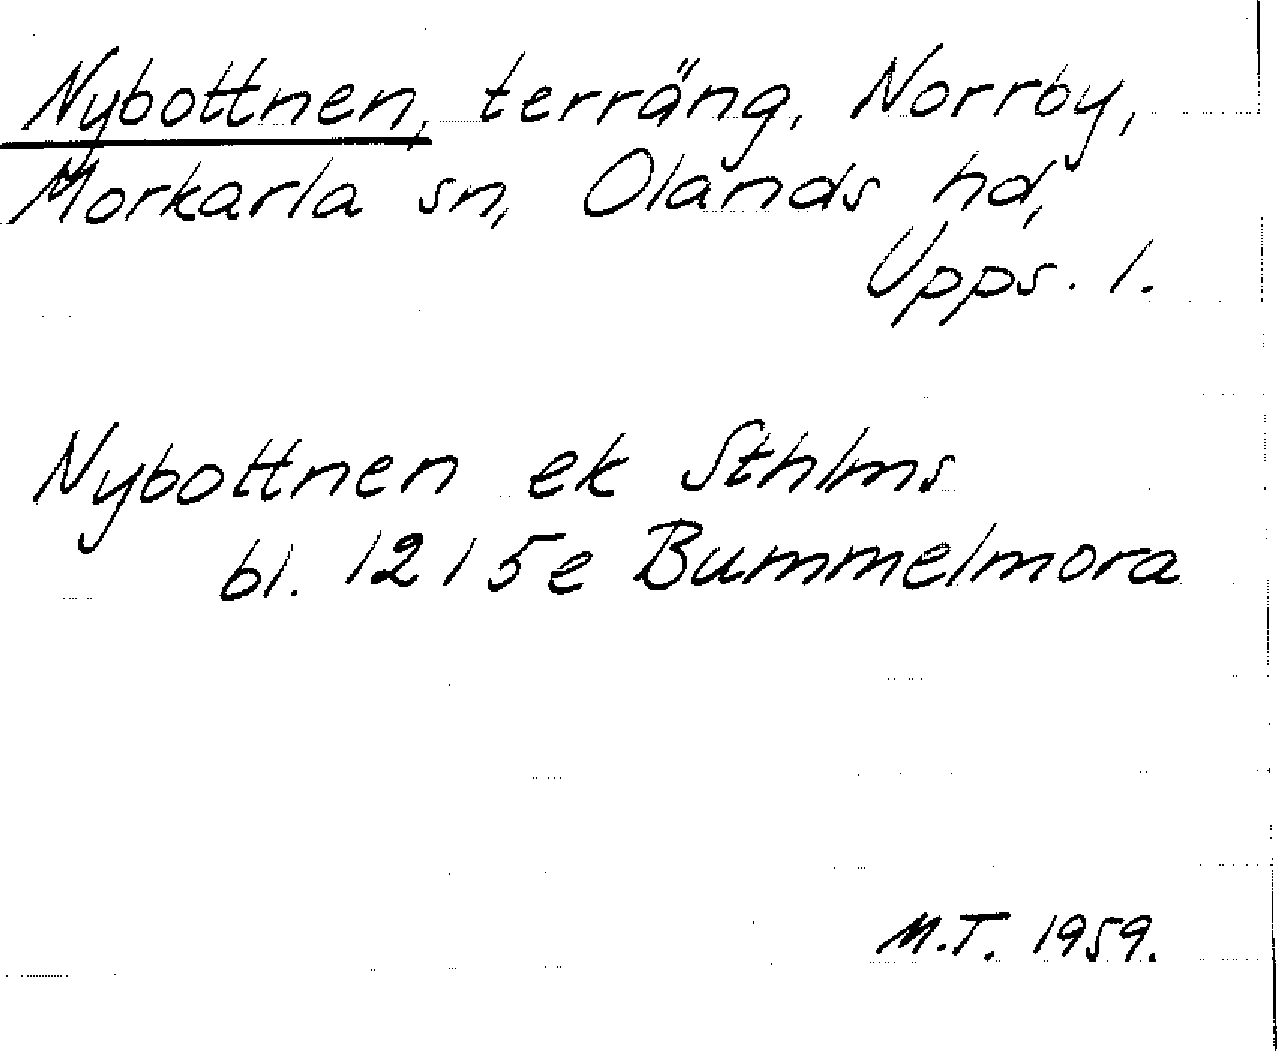 Nybottnen, terräng, Norrby,
Morkarla sn, Olands hd,
Upps. l.
Nybottnen ek Sthlms
bl. 12 I 5e Bummelmora
M.T. 1959.